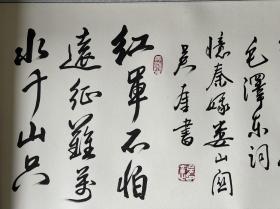 毛澤东词
憶秦娥娄山関
書
紅軍不怕
遠征難萬
水千山只